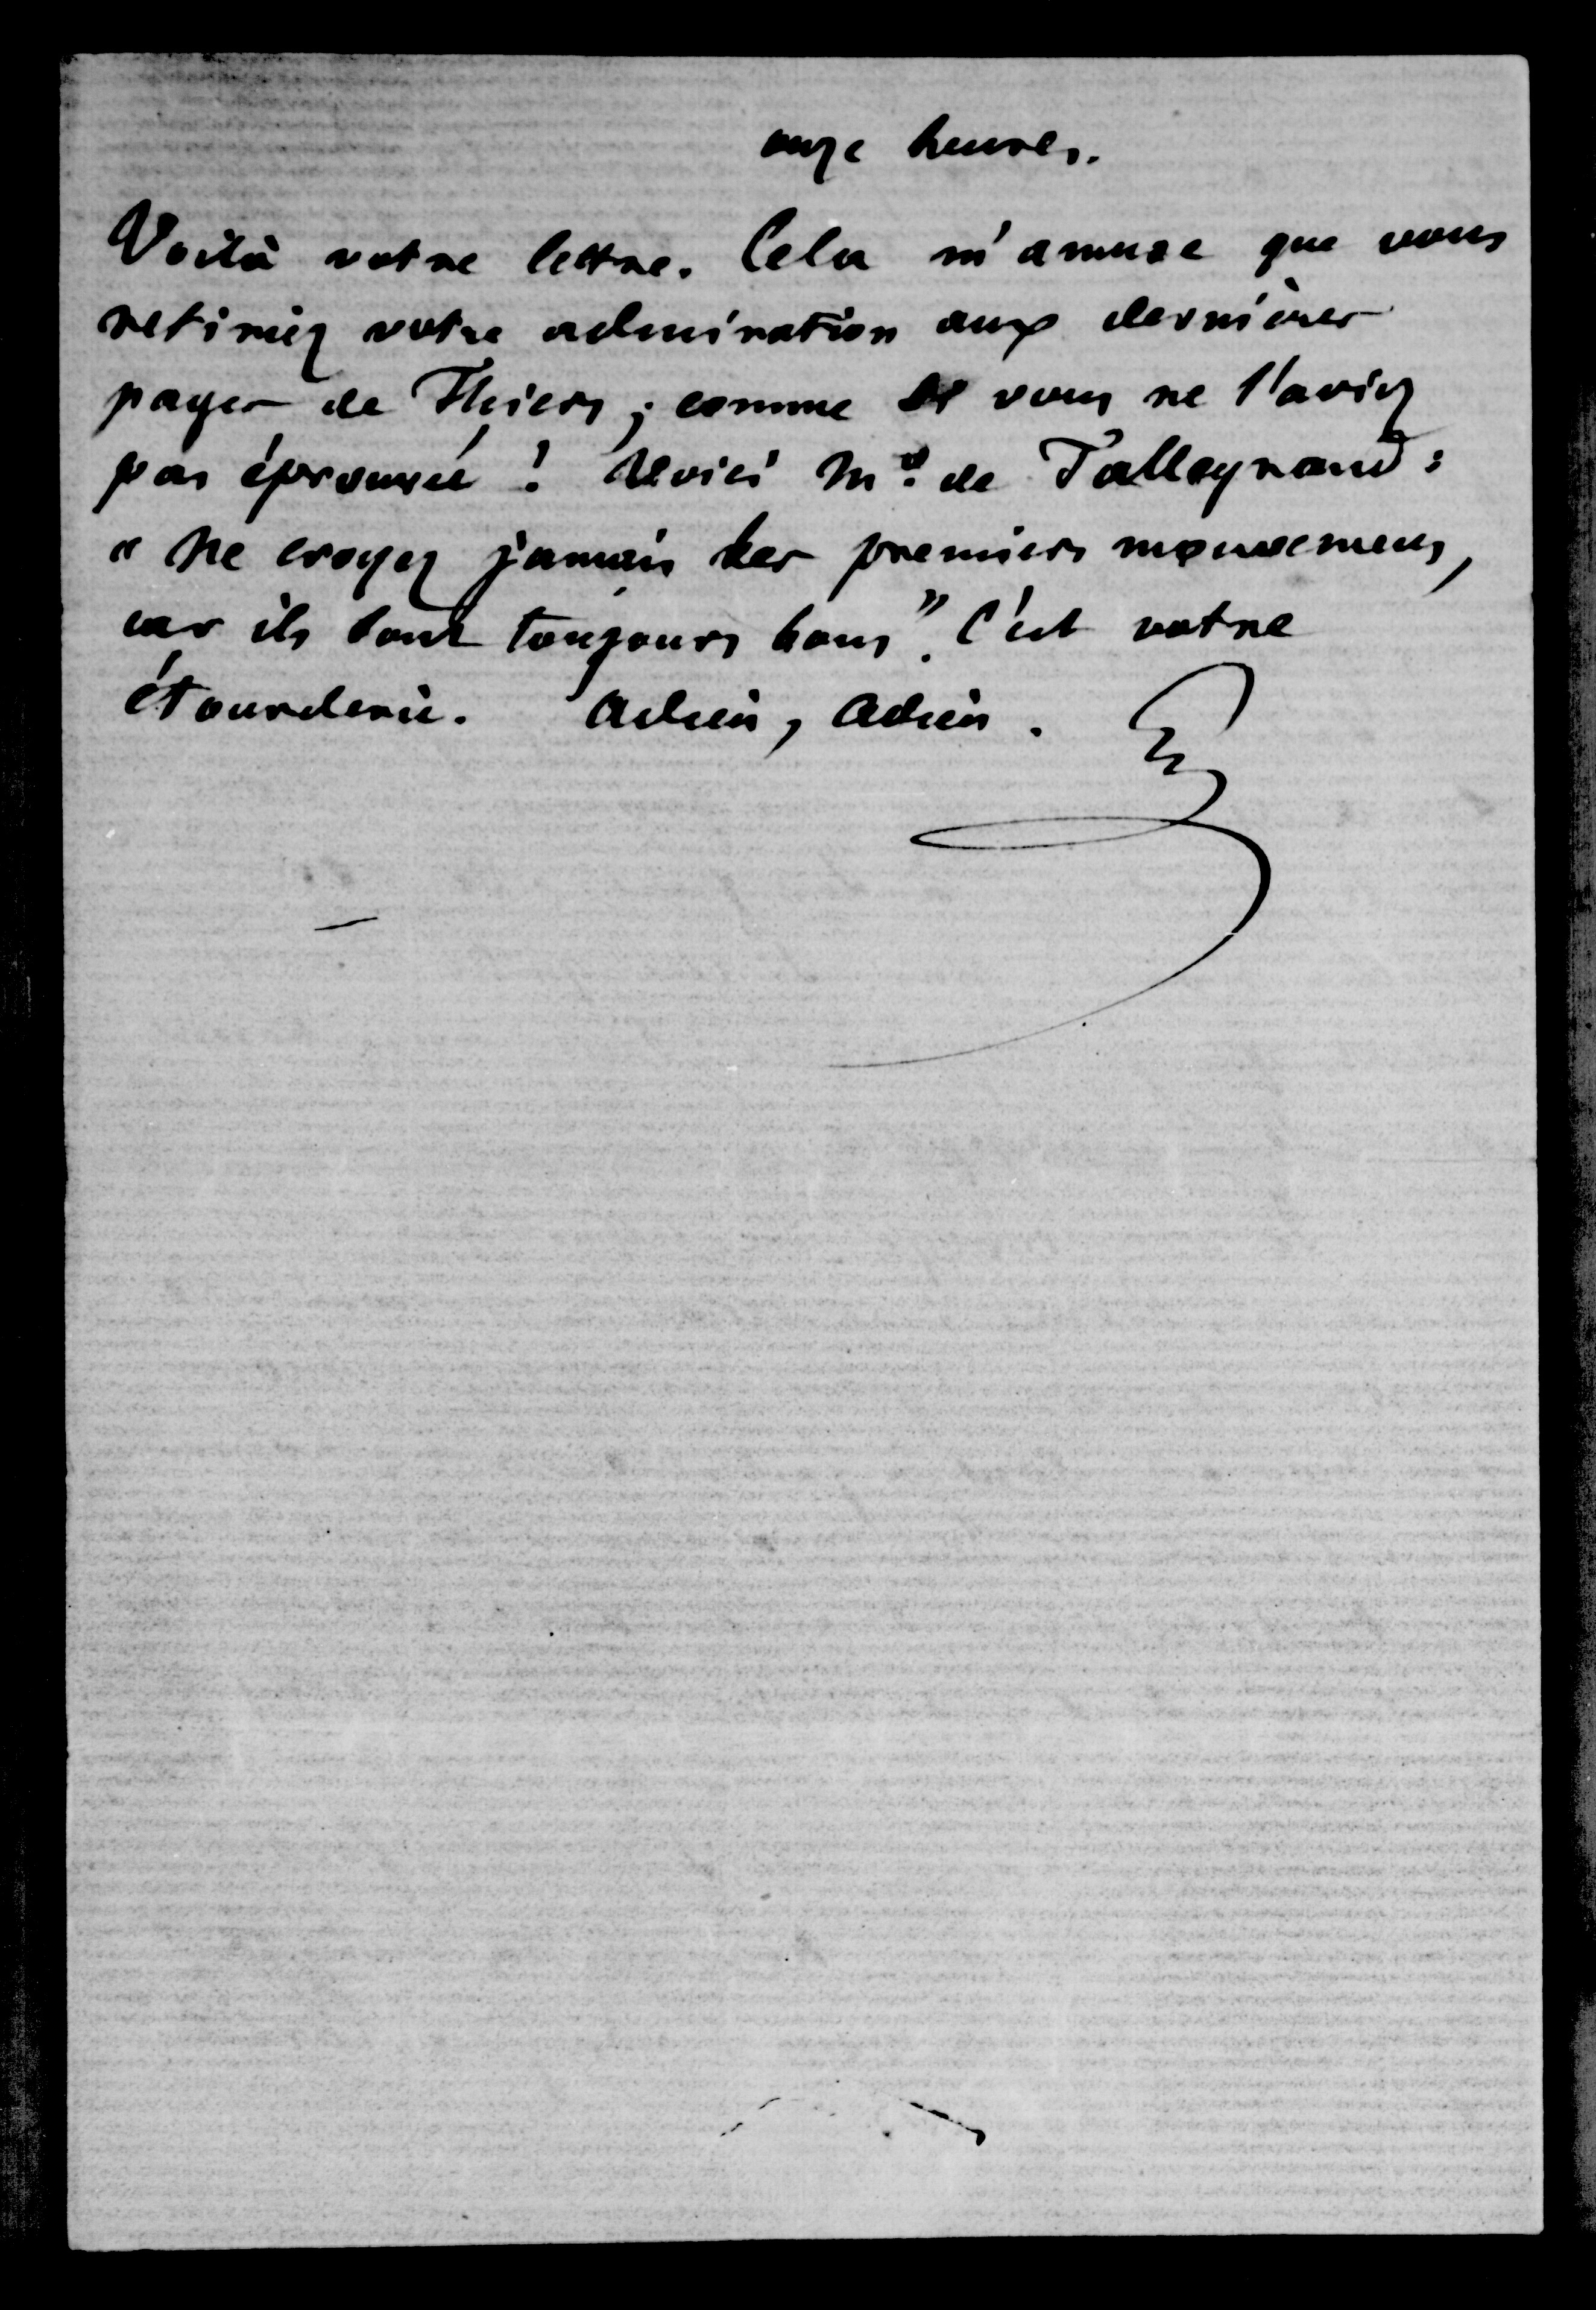 onze heures.
Voilà votre lettre. Cela m'amuse que vous
retiriez votre admiration aux dernières
pages de Thiers ; comme si vous ne l'aviez
pas éprouvée ! Voici Mr. de Talleyrand :
" Ne croyez jamais les premiers mouvemens,
car ils sont toujours bons ". C'est votre
étourderie. Adieu, Adieu.